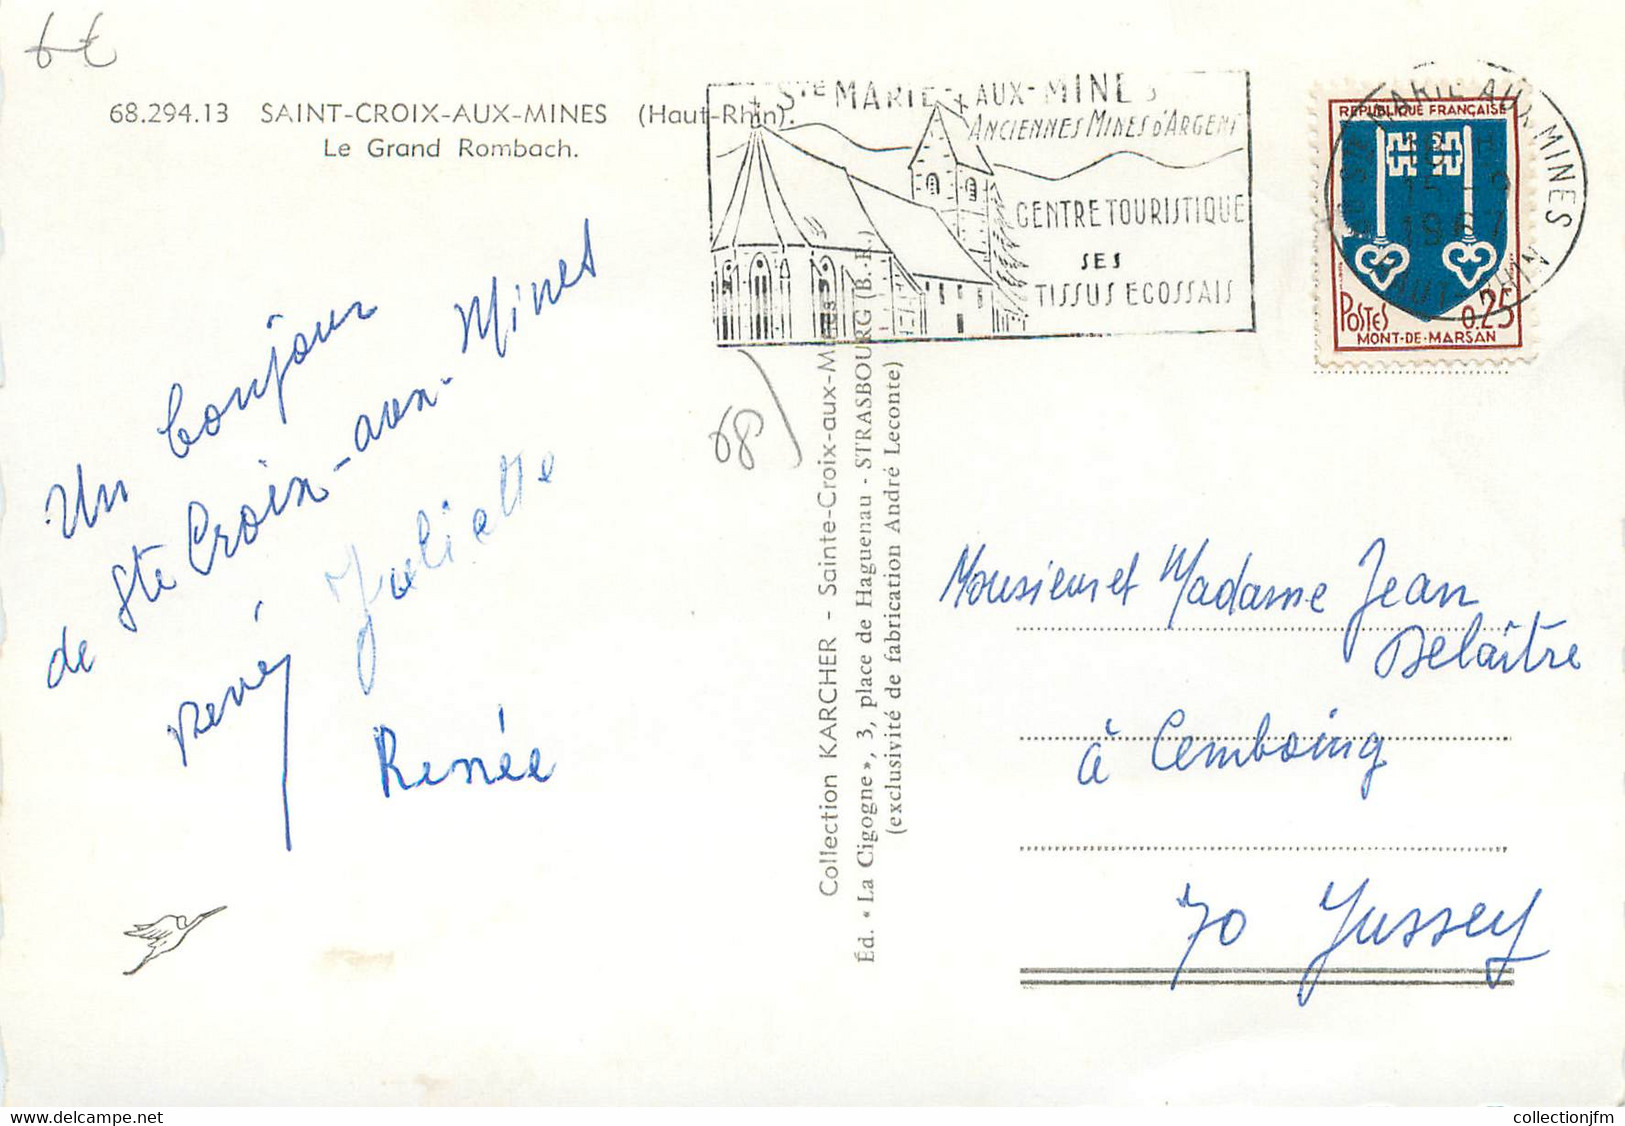 6€
68.294.13 SAINT-CROIX-AUX-MINES (Haut-Rhin).
Le Grand Rombach.
Un bonjour
de Ste Croix-aux-Mines
René Juliette
Renée
STE MARIE-AUX-MINES
ANCIENNES MINES D'ARGENT
CENTRE TOURISTIQUE
SES
TISSUS ECOSSAIS
68)
Collection KARCHER - Sainte-Croix-aux-Mines
Éd. « La Cigogne », 3, place de Haguenau - STRASBOURG (B.-R.)
(exclusivité de fabrication André Leconte)
REPUBLIQUE FRANÇAISE
POSTES 0,25
MONT-DE-MARSAN
STE MARIE AUX MINES
18 H
15 - 9
1967
HAUT-RHIN
Monsieur et Madame Jean
Delaître
à Cemboing
70 Jussey
collectionjfm